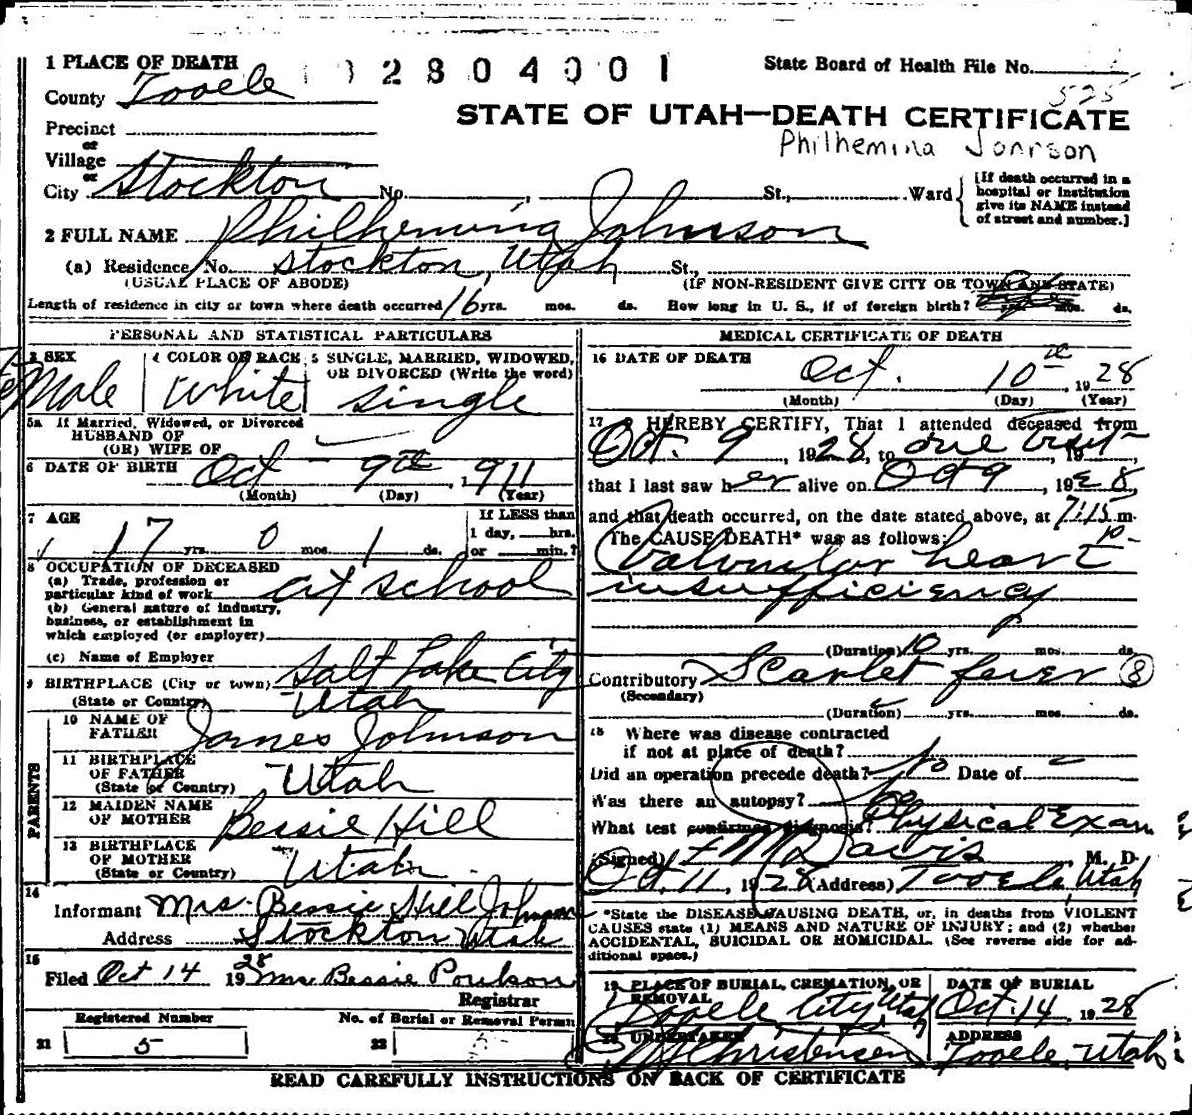 1 PLACE OF DEATH
2804001
State Board of Health File No.
525
County Tooele
STATE OF UTAH—DEATH CERTIFICATE
Precinct
Philhemina Jonrson
or
Village
or
City Stockton No. , St., Ward
[If death occurred in a hospital or institution give its NAME instead of street and number.]
2 FULL NAME Philhemina Johnson
(a) Residence No. Stockton, Utah St.,
(USUAL PLACE OF ABODE) (IF NON-RESIDENT GIVE CITY OR TOWN AND STATE)
Length of residence in city or town where death occurred 16 yrs. mos. ds. How long in U. S., if of foreign birth? yrs. mos. ds.
PERSONAL AND STATISTICAL PARTICULARS
3 SEX 4 COLOR OR RACE 5 SINGLE, MARRIED, WIDOWED, OR DIVORCED (Write the word)
Male White Single
5a If Married, Widowed, or Divorced
HUSBAND OF
(OR) WIFE OF
6 DATE OF BIRTH Oct - 9th, 1911
(Month) (Day) (Year)
7 AGE If LESS than
1 day, hrs.
17 yrs. 0 mos. 1 ds. or min.?
8 OCCUPATION OF DECEASED
(a) Trade, profession or
particular kind of work at school
(b) General nature of industry,
business, or establishment in
which employed (or employer)
(c) Name of Employer
9 BIRTHPLACE (City or town) Salt Lake City
(State or Country) Utah
PARENTS
10 NAME OF
FATHER James Johnson
11 BIRTHPLACE
OF FATHER
(State or Country) Utah
12 MAIDEN NAME
OF MOTHER Bessie Hill
13 BIRTHPLACE
OF MOTHER
(State or Country) Utah
14
Informant Mrs. Bessie Hill Johnson
Address Stockton Utah
15
Filed Oct 14 1928 Mrs Bessie Poulson
Registrar
Registered Number No. of Burial or Removal Permit
21 5 22 5
MEDICAL CERTIFICATE OF DEATH
16 DATE OF DEATH
Oct. 10th 1928
(Month) (Day) (Year)
17 I HEREBY CERTIFY, That I attended deceased from
Oct. 9, 1928, to one visit, 19
that I last saw her alive on Oct 9, 1928,
and that death occurred, on the date stated above, at 7:15 p m.
The CAUSE DEATH* was as follows:
Valvular heart
insufficiency
(Duration) 10 yrs. mos. ds.
Contributory Scarlet fever 8
(Secondary)
(Duration) yrs. mos. ds.
18 Where was disease contracted
if not at place of death?
Did an operation precede death? No Date of
Was there an autopsy? No
What test confirmed diagnosis? Physical Exam
(Signed) F M Davis, M. D.
Oct. 11, 1928 (Address) Tooele Utah
*State the DISEASE CAUSING DEATH, or, in deaths from VIOLENT
CAUSES state (1) MEANS AND NATURE OF INJURY; and (2) whether
ACCIDENTAL, SUICIDAL OR HOMICIDAL. (See reverse side for ad-
ditional space.)
19 PLACE OF BURIAL, CREMATION, OR REMOVAL DATE OF BURIAL
Tooele City, Utah Oct. 14 1928
20 UNDERTAKER ADDRESS
Christensen Tooele, Utah
READ CAREFULLY INSTRUCTIONS ON BACK OF CERTIFICATE